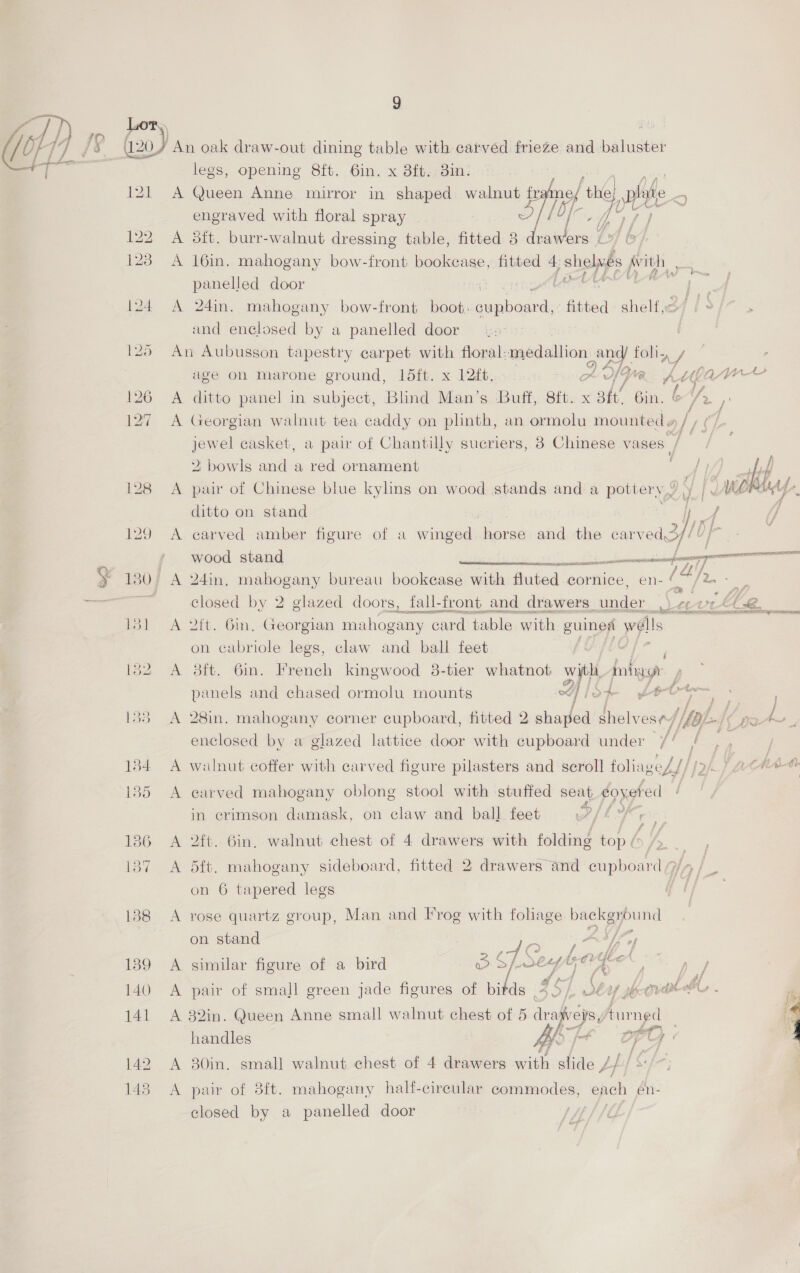 9
Lot
120 An oak draw-out dining table with carved frieze and baluster
legs, opening 8ft. 6in. x 3ft. 3in.
121 A Queen Anne mirror in shaped walnut frame, the plate
engraved with floral spray
122 A 3ft. burr-walnut dressing table, fitted 3 drawers
123 A 16in. mahogany bow-front bookcase, fitted 4 shelves with
panelled door
124 A 24in. mahogany bow-front boot cupboard, fitted shelf,
and enclosed by a panelled door
125 An Aubusson tapestry carpet with floral medallion and foli-
age on marone ground, 15ft. x 12ft.
126 A ditto panel in subject, Blind Man's Buff, 8ft. x 3ft. 6in.
127 A Georgian walnut tea caddy on plinth, an ormolu mounted
jewel casket, a pair of Chantilly sucriers, 3 Chinese vases
2 bowls and a red ornament
128 A pair of Chinese blue kylins on wood stands and a pottery
ditto on stand
129 A carved amber figure of a winged horse and the carved
wood stand
130 A 24in. mahogany bureau bookcase with fluted cornice, en-
closed by 2 glazed doors, fall-front and drawers under
131 A 2ft. 6in. Georgian mahogany card table with guinea wells
on cabriole legs, claw and ball feet
132 A 3ft. 6in. French kingwood 3-tier whatnot with mirror
panels and chased ormolu mounts
133 A 28in. mahogany corner cupboard, fitted 2 shaped shelves
enclosed by a glazed lattice door with cupboard under
134 A walnut coffer with carved figure pilasters and scroll foliage
135 A carved mahogany oblong stool with stuffed seat covered
in crimson damask, on claw and ball feet
136 A 2ft. 6in. walnut chest of 4 drawers with folding top
137 A 5ft. mahogany sideboard, fitted 2 drawers and cupboard
on 6 tapered legs
138 A rose quartz group, Man and Frog with foliage background
on stand
139 A similar figure of a bird
140 A pair of small green jade figures of birds
141 A 32in. Queen Anne small walnut chest of 5 drawers, turned
handles
142 A 30in. small walnut chest of 4 drawers with slide
143 A pair of 3ft. mahogany half-circular commodes, each en-
closed by a panelled door